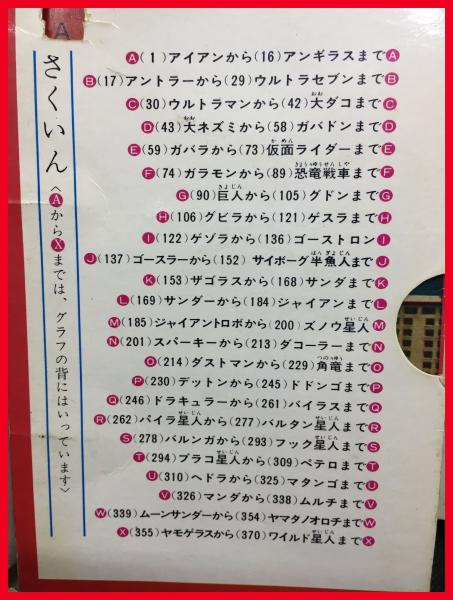 A
さくいん〈ⒶからⓍまでは、グラフの背にはいっています〉
Ⓐ(1)アイアンから(16)アンギラスまでⒶ
Ⓑ(17)アントラーから(29)ウルトラセブンまでⒷ
Ⓒ(30)ウルトラマンから(42)大ダコまでⒸ
Ⓓ(43)大ネズミから(58)ガバドンまでⒹ
Ⓔ(59)ガバラから(73)仮面ライダーまでⒺ
Ⓕ(74)ガラモンから(89)恐竜戦車までⒻ
Ⓖ(90)巨人から(105)グドンまでⒼ
Ⓗ(106)グビラから(121)ゲスラまでⒽ
Ⓘ(122)ゲゾラから(136)ゴーストロンⒾ
Ⓙ(137)ゴースラーから(152)サイボーグ半魚人までⒿ
Ⓚ(153)ザゴラスから(168)サンダまでⓀ
Ⓛ(169)サンダーから(184)ジャイアンまでⓁ
Ⓜ(185)ジャイアントロボから(200)ズノウ星人Ⓜ
Ⓝ(201)スパーキーから(213)ダコーラーまでⓃ
Ⓞ(214)ダストマンから(229)角竜までⓄ
Ⓟ(230)デットンから(245)ドドンゴまでⓅ
Ⓠ(246)ドラキュラーから(261)バイラスまでⓆ
Ⓡ(262)バイラ星人から(277)バルタン星人までⓇ
Ⓢ(278)バルンガから(293)フック星人までⓈ
Ⓣ(294)ブラコ星人から(309)ペテロまでⓉ
Ⓤ(310)ヘドラから(325)マタンゴまでⓊ
Ⓥ(326)マンダから(338)ムルチまでⓋ
Ⓦ(339)ムーンサンダーから(354)ヤマタノオロチまでⓌ
Ⓧ(355)ヤモゲラスから(370)ワイルド星人までⓍ